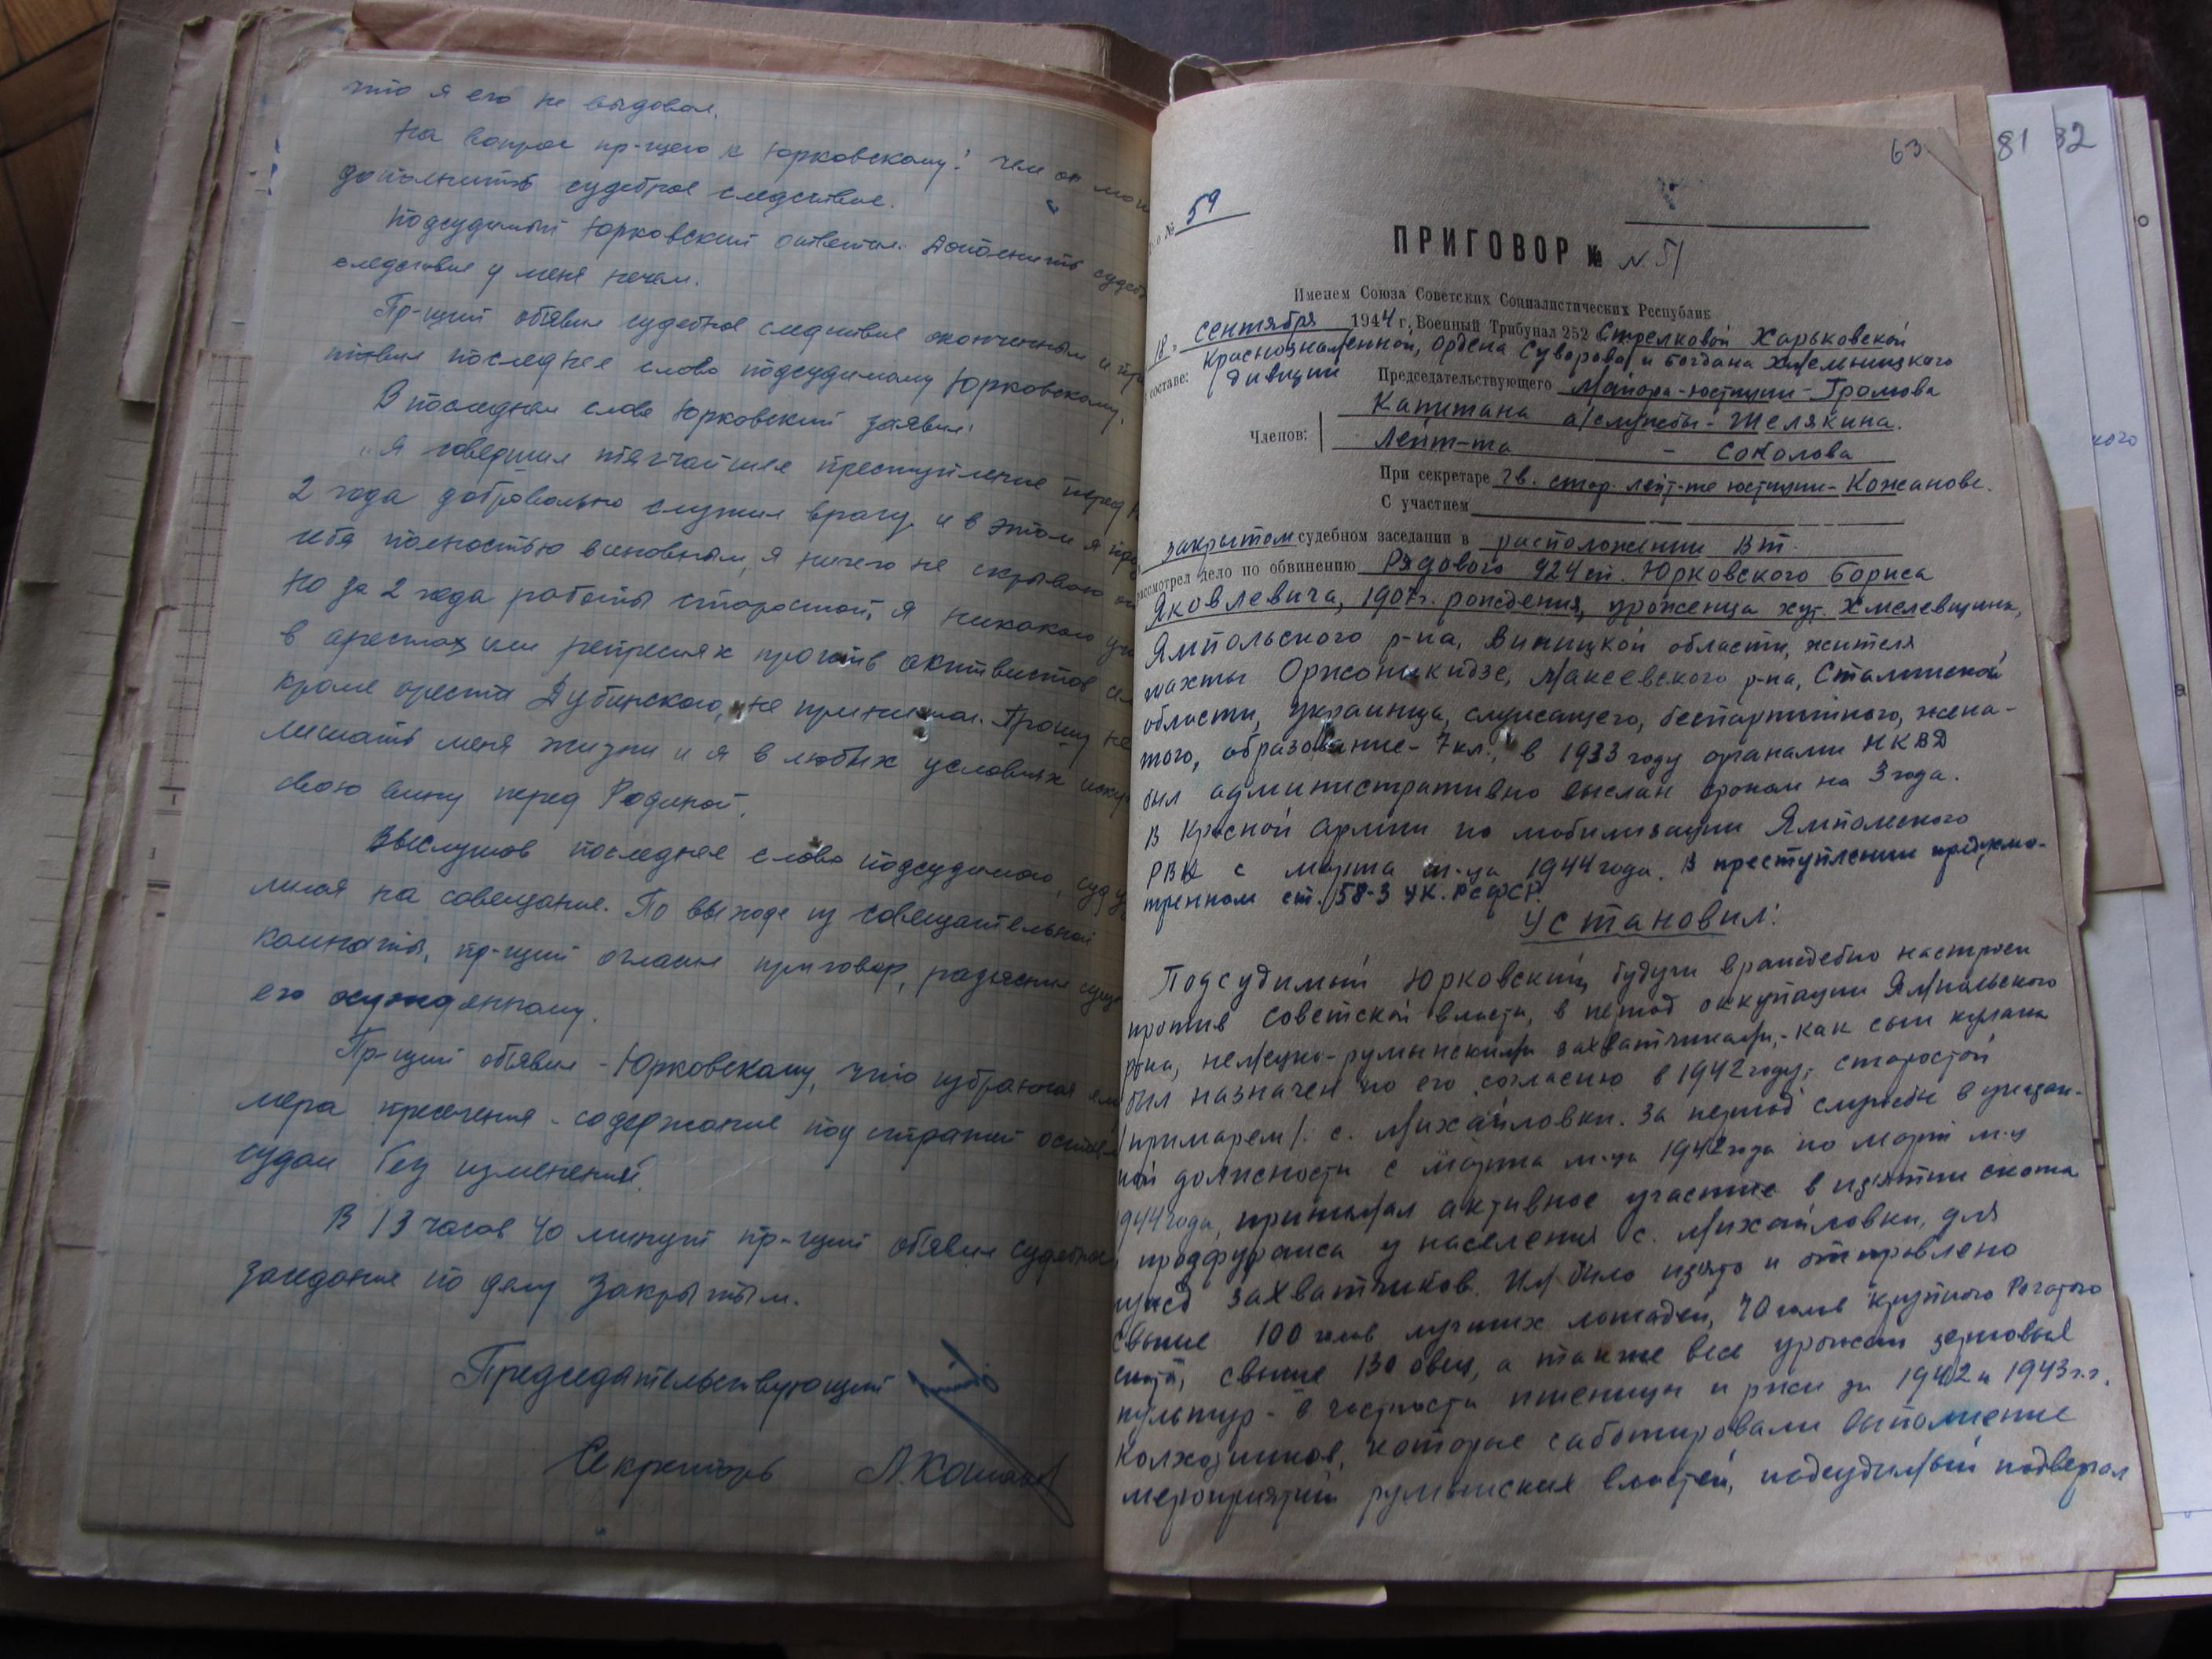 что я его не выдовал.
На вопрос пр-щего к Юрковскому: чем он
дополнить судебное следствие.
Подсудимый Юрковский ответил: Дополнить
следствие у меня нечем.
Пр-щий обявил судебное следствие оконченным и
последнее слово подсудимому Юрковскому.
В последнем слове Юрковский заявил:
"Я совершил тягчайшее преступление перед
2 года добровольно служил врагу и в этом я
себя полностью виновным, я ничего не скрываю
но за 2 года работы старостой, я никакого
в арестах или репресиях против активистов
кроме ареста Дубинского, не принимал. Прошу не
лишать меня жизни и я в любых условиях
свою вину перед Родиной.
Выслушав последнее слово подсудимого, суд
лился на совещание. По выходе из совещательной
комнаты, пр-щий огласил приговор, разяснил
его осужденному.
Пр-щий обявил - Юрковскому, что избранная
мера пресечения - содержание под стражей
судом без изменений.
В 13 часов 40 минут пр-щий обявил судебное
заседание по делу закрытым.
Председательствующий
Секретарь
63
81
32
№ 59
ПРИГОВОР № N 51
Именем Союза Советских Социалистических Республик
18 " сентября 1944 г. Военный Трибунал 252 Стрелковой Харьковской
Краснознаменной, Ордена Суворова и Богдана Хмельницкого
составе: дивизии Председательствующего Майора-юстиции - Громова
Капитана а/службы - Шелякина.
Членов: Лейт-та - Соколова
При секретаре гв. стар. лейт-те юстиции - Кожанове.
С участием
закрытом судебном заседании в расположении ВТ.
рассмотрел дело по обвинению Рядового 924 сп. Юрковского Бориса
Яковлевича, 1907 г. рождения, уроженца хут. Хмелевщина,
Ямпольского р-на, Виницкой области, жителя
шахты Оржоникидзе, Макеевского р-на, Сталинской
области, украинца, служащего, беспартийного, жена-
того, образование - 7 кл., в 1933 году органами НКВД
был административно выслан сроком на 3 года.
В Красной армии по мобилизации Ямпольского
РВК с марта м-ца 1944 года. В преступлении предусмо-
тренном ст. 58-3 УК. РСФСР.
Установил:
Подсудимый Юрковский, будучи враждебно настроен
против советской власти, в период оккупации Ямпольского
р-на, немецко-румынскими захватчиками, - как сын кулака
был назначен по его согласию в 1942 году, старостой
/примарем/ с. Михайловки. За период службы в указан-
ной должности с марта м-ца 1942 года по март м-ц
1944 года, принимал активное участие в изятии скота
и продфуража у населения с. Михайловки, для
нужд захватчиков. Им было изято и отправлено
свыше 100 голов лучших лошадей, 70 голов крупного рогатого
скота, свыше 130 овец, а также весь урожай зерновых
культур - в частности пшеницы и ржи за 1942 и 1943 г.г.
Колхозников, которые саботировали выполнение
мероприятий румынских властей, подсудимый подвергал